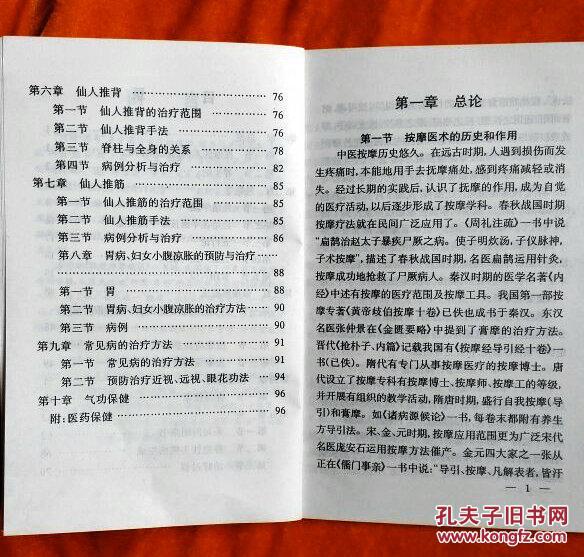 第六章 仙人推背 …… 76
第一节 仙人推背的治疗范围 …… 76
第二节 仙人推背手法 …… 76
第三节 脊柱与全身的关系 …… 78
第四节 病例分析与治疗 …… 82
第七章 仙人推筋 …… 85
第一节 仙人推筋的治疗范围 …… 85
第二节 仙人推筋手法 …… 85
第三节 病例分析与治疗 …… 86
第八章 胃病、妇女小腹凉胀的预防与治疗 ……
…… 88
第一节 胃 …… 88
第二节 胃病、妇女小腹凉胀的治疗方法 …… 90
第三节 病例 …… 90
第九章 常见病的治疗方法 …… 91
第一节 常见病的治疗方法 …… 91
第二节 预防治疗近视、远视、眼花功法 …… 94
第十章 气功保健 …… 96
附:医药保健 …… 96
第一章 总论
第一节 按摩医术的历史和作用
中医按摩历史悠久。在远古时期,人遇到损伤而发
生疼痛时,本能地用手去抚摩痛处,感到疼痛减轻或消
失。经过长期的实践后,认识了抚摩的作用,成为自觉
的医疗活动,以后逐步形成了按摩学科。春秋战国时期
按摩疗法就在民间广泛应用了。《周礼注疏》一书中说
"扁鹊治赵太子暴疾尸厥之病。使子明炊汤,子仪脉神,
子术按摩",描述了春秋战国时期,名医扁鹊运用针灸、
按摩成功地抢救了尸厥病人。秦汉时期的医学名著《内
经》中述有按摩的医疗范围及按摩工具。我国第一部按
摩专著《黄帝歧伯按摩十卷》已佚也成书于秦汉。东汉
名医张仲景在《金匮要略》中提到了膏摩的治疗方法。
晋代《抢朴子、内篇》记载我国有《按摩经导引经十卷》一
书(已佚)。隋代有专门从事按摩医疗的按摩博士。唐
代设立了按摩专科有按摩博士、按摩师、按摩工的等级,
并开展有组织的教学活动,隋唐时期,盛行自我按摩(导
引)和膏摩。如《诸病源候论》一书,每卷末都附有养生
方导引法。宋、金、元时期,按摩应用范围更为广泛宋代
名医庞安石运用按摩方法催产。金元四大家之一张从
正在《儒门事亲》一书中说:"导引、按摩、凡解表者,皆汗
— 1 —
孔夫子旧书网